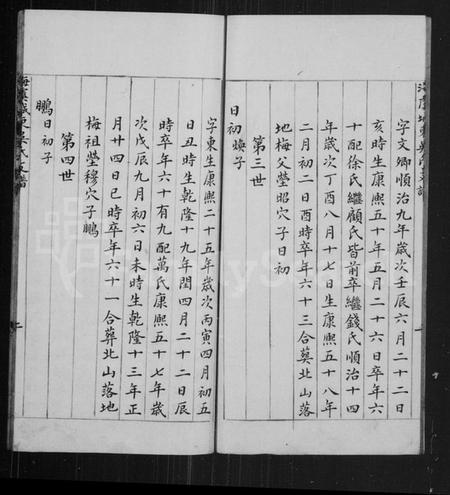 字文卿順治九年歲次壬辰六月二十二日
亥時生康熙五十年五月二十六日卒年六
十配徐氏繼顧氏皆前卒繼錢氏順治十四
年歲次丁酉八月十七日生康熙五十八年
二月初二日酉時卒年六十三合葬北山落
地梅父塋昭穴子日初
第三世
日初煥子
字東生康熙二十五年歲次丙寅四月初五
日丑時生乾隆十九年閏四月二十二日辰
時卒年六十有九配萬氏康熙五十七年歲
次戊辰九月初六日未時生乾隆十三年正
月廿四日巳時卒年六十一合葬北山落地
梅祖塋穆穴子鵬
第四世
鵬日初子